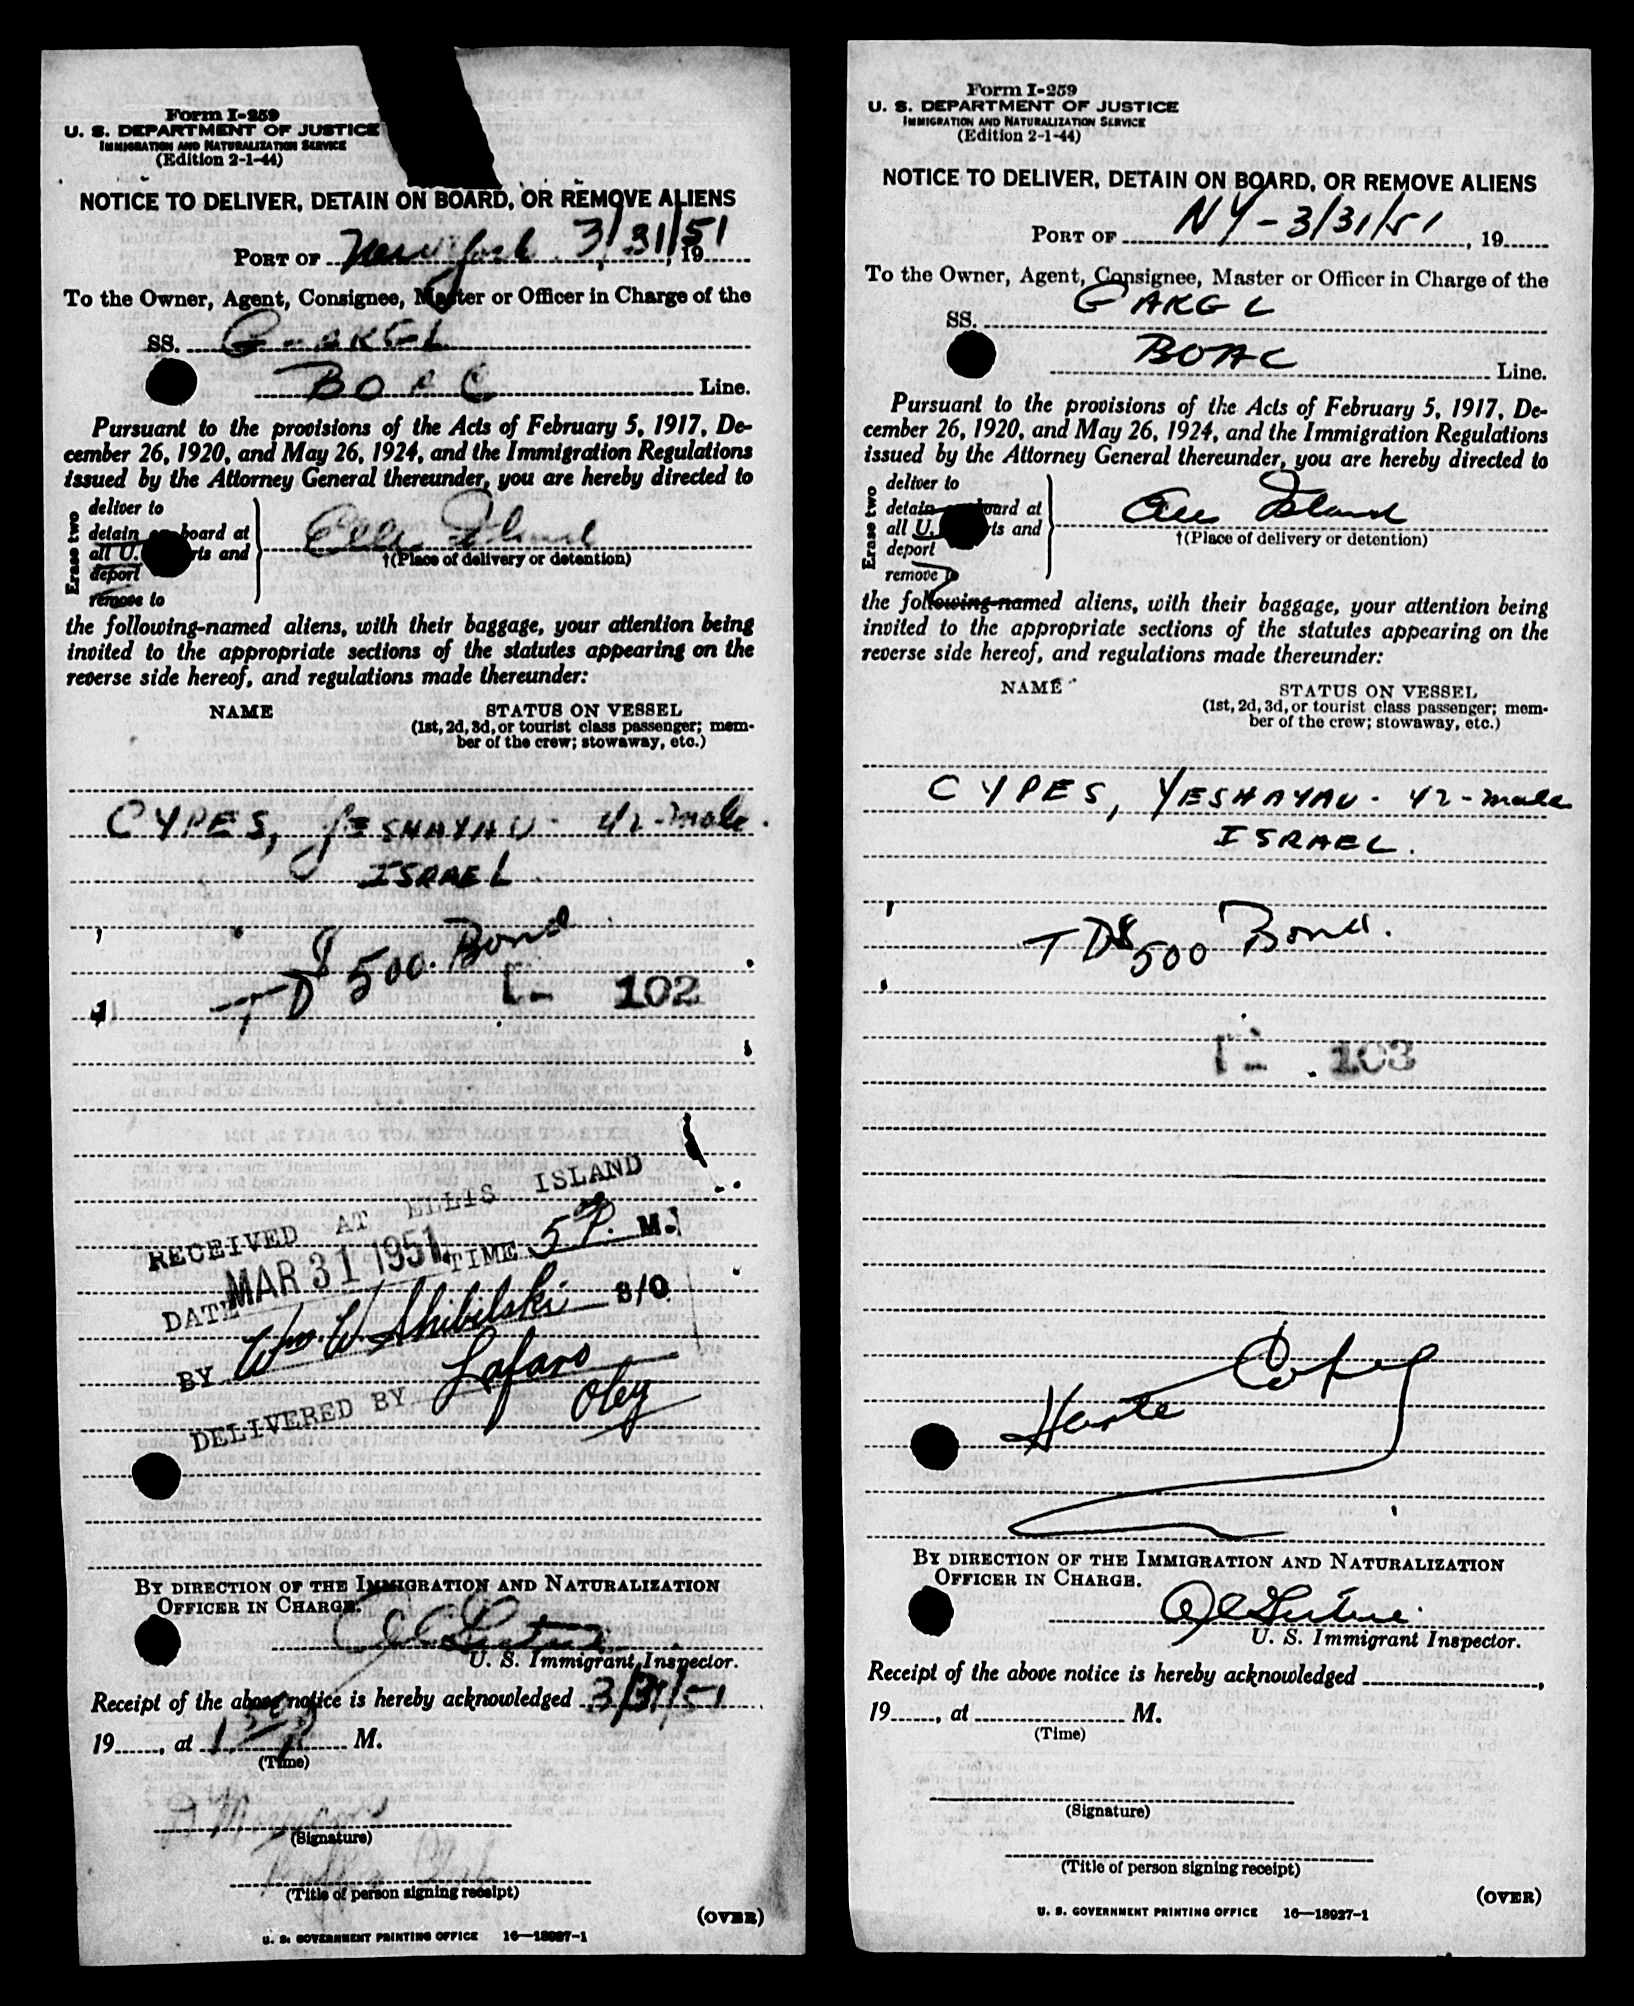 Form I-259
U. S. DEPARTMENT OF JUSTICE
IMMIGRATION AND NATURALIZATION SERVICE
(Edition 2-1-44)
NOTICE TO DELIVER, DETAIN ON BOARD, OR REMOVE ALIENS
PORT OF New York 3/31/51, 19
To the Owner, Agent, Consignee, Master or Officer in Charge of the
SS. G-AKGL
BOAC Line.
Pursuant to the provisions of the Acts of February 5, 1917, De-
cember 26, 1920, and May 26, 1924, and the Immigration Regulations
issued by the Attorney General thereunder, you are hereby directed to
Erase two
deliver to
detain on board at
all U. ts and
deport
remove to
Ellis Island
†(Place of delivery or detention)
the following-named aliens, with their baggage, your attention being
invited to the appropriate sections of the statutes appearing on the
reverse side hereof, and regulations made thereunder:
NAME STATUS ON VESSEL
(1st, 2d, 3d, or tourist class passenger; mem-
ber of the crew; stowaway, etc.)
CYPES, YESHAYAU - 42 - male.
ISRAEL
TD $500. Bond
I- 102
RECEIVED AT ELLIS ISLAND
DATE MAR 31 1951 TIME 5 P. M.
BY Wm. W. Shibilski S/O
DELIVERED BY Lafaro
Oley
BY DIRECTION OF THE IMMIGRATION AND NATURALIZATION
OFFICER IN CHARGE.
U. S. Immigrant Inspector.
Receipt of the above notice is hereby acknowledged 3/31/51
19, at M.
(Time)
(Signature)
(Title of person signing receipt)
(OVER)
U. S. GOVERNMENT PRINTING OFFICE 16—18927-1
Form I-259
U. S. DEPARTMENT OF JUSTICE
IMMIGRATION AND NATURALIZATION SERVICE
(Edition 2-1-44)
NOTICE TO DELIVER, DETAIN ON BOARD, OR REMOVE ALIENS
PORT OF NY - 3/31/51, 19
To the Owner, Agent, Consignee, Master or Officer in Charge of the
SS. GAKGL
BOAC Line.
Pursuant to the provisions of the Acts of February 5, 1917, De-
cember 26, 1920, and May 26, 1924, and the Immigration Regulations
issued by the Attorney General thereunder, you are hereby directed to
Erase two
deliver to
detain board at
all U. ts and
deport
remove to
Ellis Island
†(Place of delivery or detention)
the following-named aliens, with their baggage, your attention being
invited to the appropriate sections of the statutes appearing on the
reverse side hereof, and regulations made thereunder:
NAME STATUS ON VESSEL
(1st, 2d, 3d, or tourist class passenger; mem-
ber of the crew; stowaway, etc.)
CYPES, YESHAYAU - 42 - male
ISRAEL.
TD $500 Bond.
I- 103
BY DIRECTION OF THE IMMIGRATION AND NATURALIZATION
OFFICER IN CHARGE.
U. S. Immigrant Inspector.
Receipt of the above notice is hereby acknowledged ,
19, at M.
(Time)
(Signature)
(Title of person signing receipt)
(OVER)
U. S. GOVERNMENT PRINTING OFFICE 16—18927-1